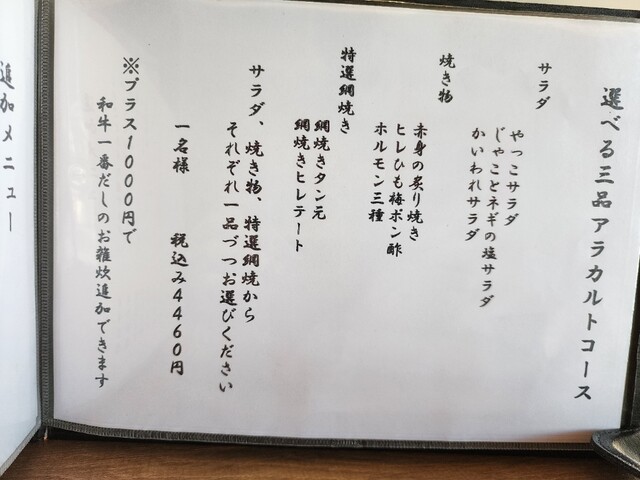 選べる三品アラカルトコース
サラダ
やっこサラダ
じゃことネギの塩サラダ
かいわれサラダ
焼き物
赤身の炙り焼き
ヒレひも梅ポン酢
ホルモン三種
特選網焼き
網焼きタン元
網焼きヒレテート
サラダ、焼き物、特選網焼から
それぞれ一品づつお選びください
一名様 税込み4460円
※プラス1000円で
和牛一番だしのお雑炊追加できます
追加メニュー